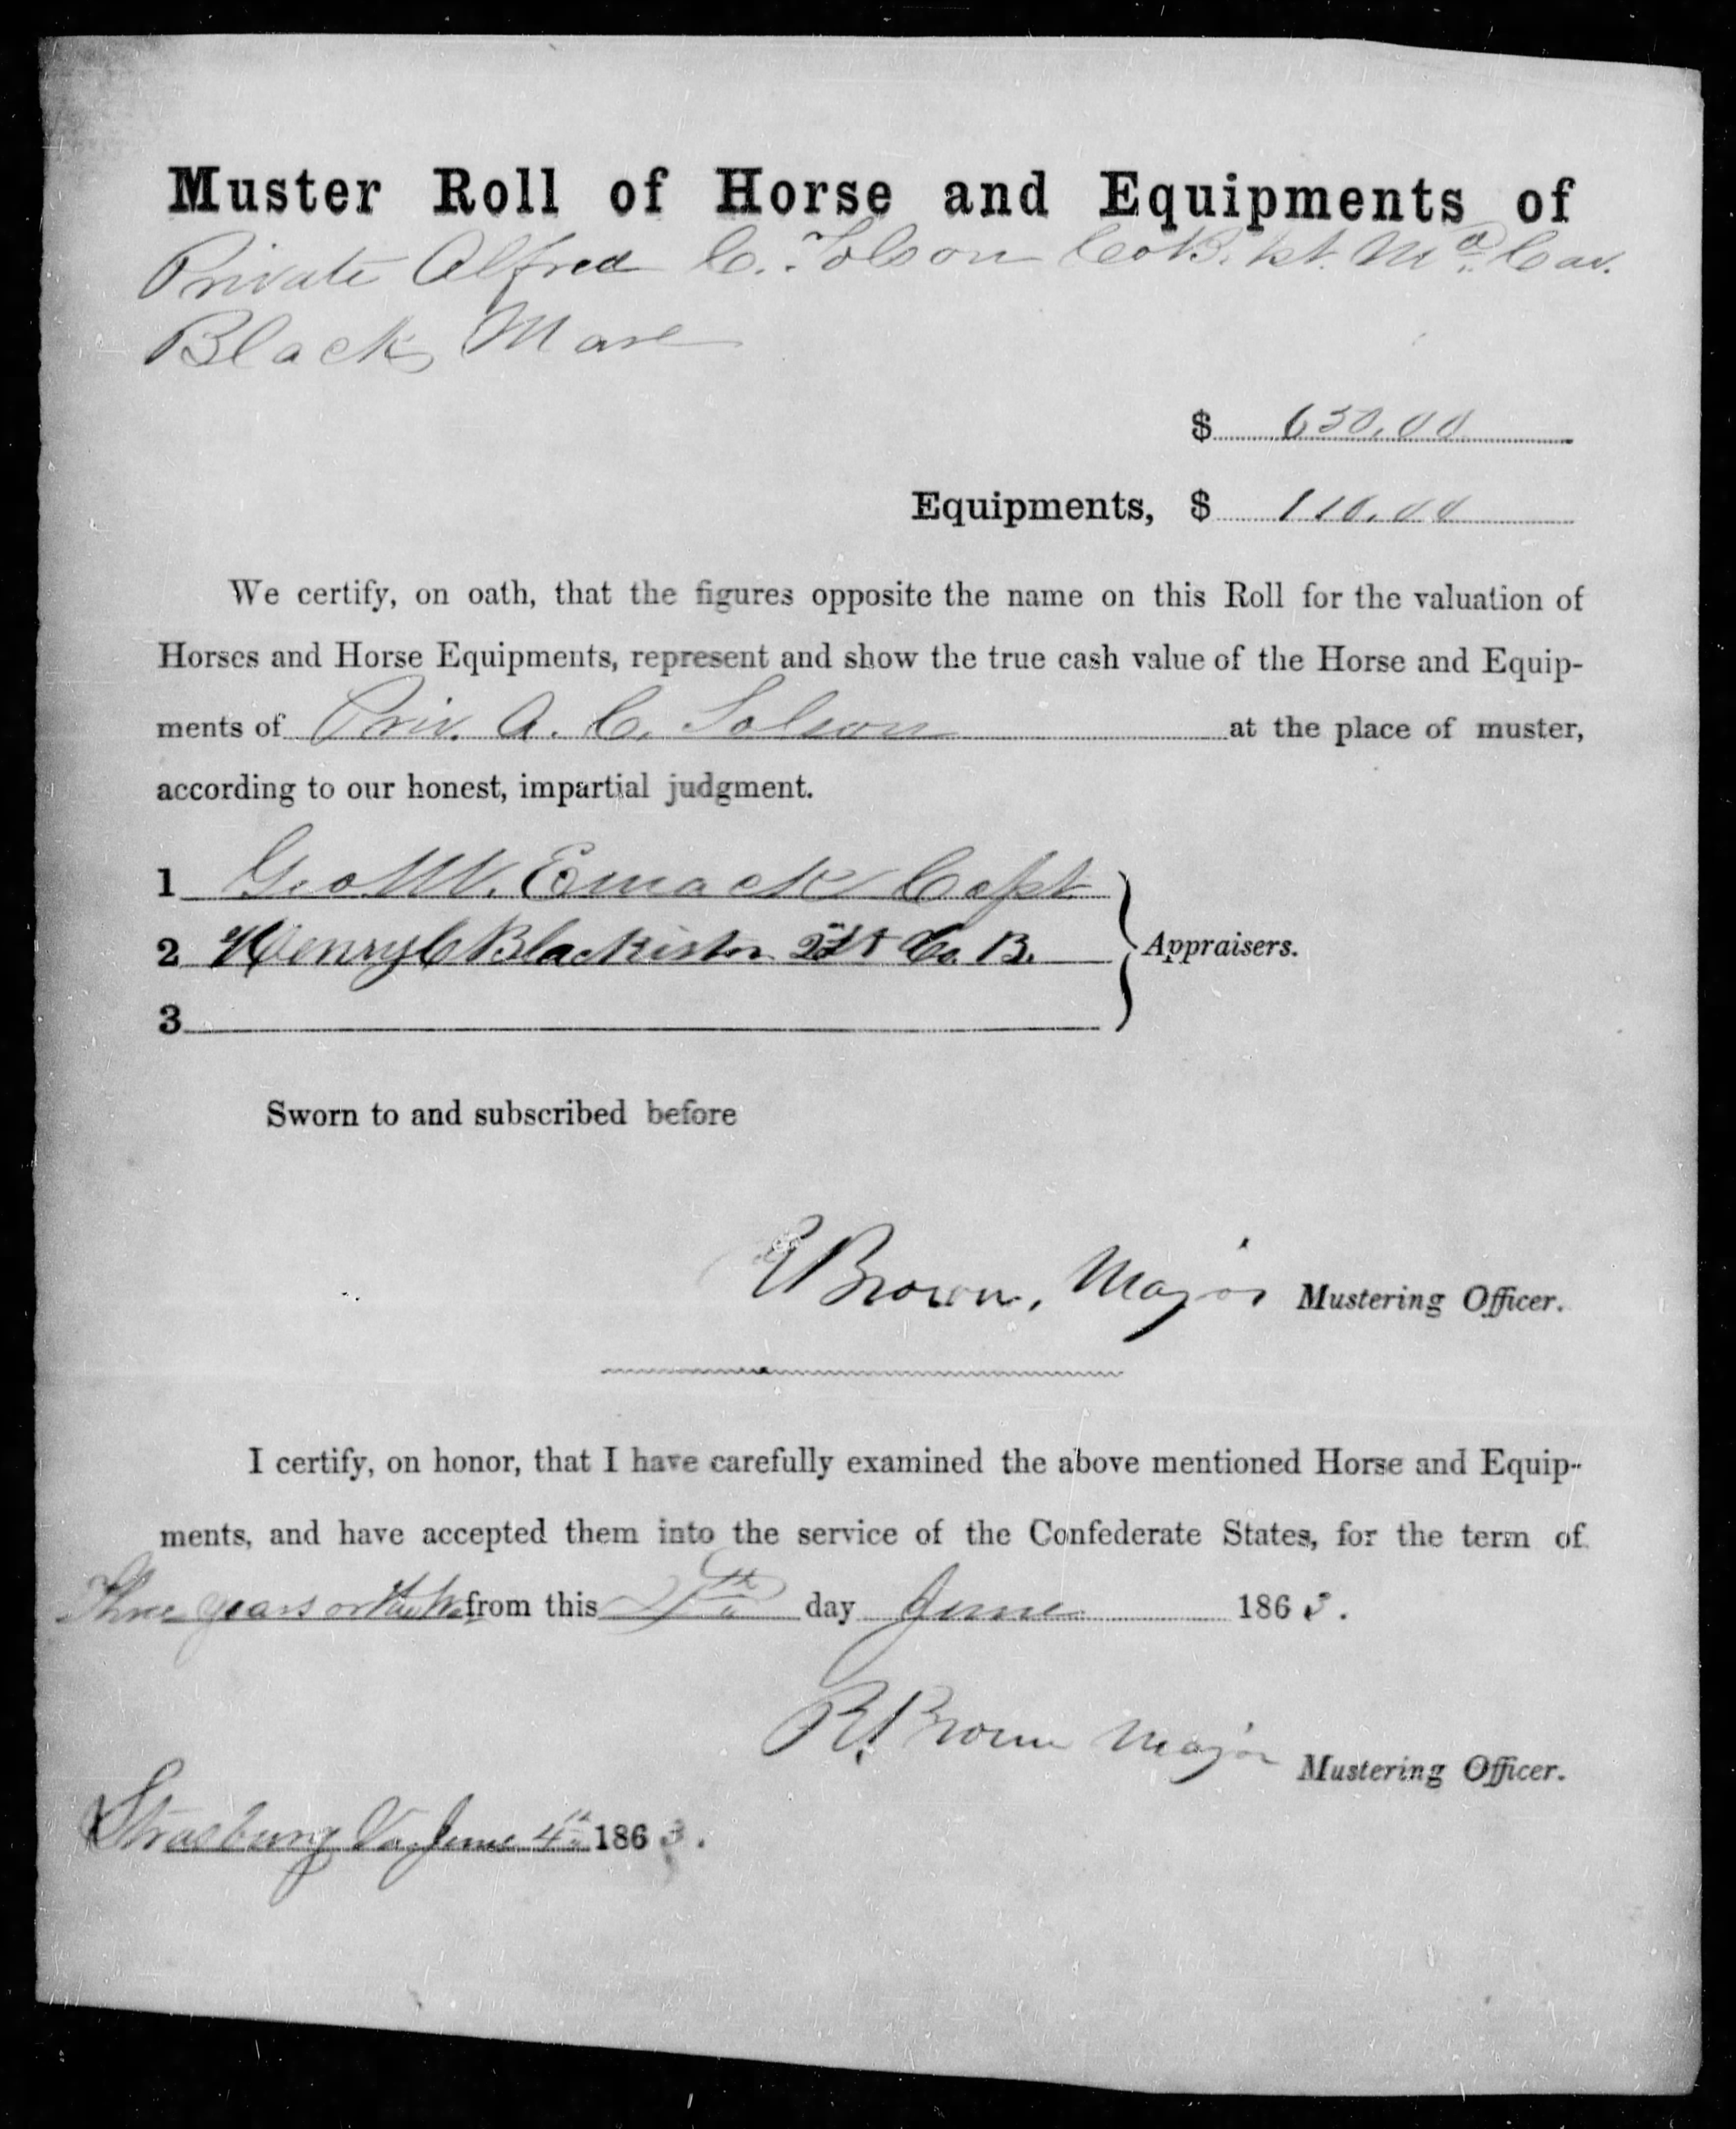 Muster Roll of Horse and Equipments of
Private Alfred C. Tolson Co B. 1st. Md. Cav.
Black Mare
$ 650.00
Equipments, $ 110.00
We certify, on oath, that the figures opposite the name on this Roll for the valuation of
Horses and Horse Equipments, represent and show the true cash value of the Horse and Equip-
ments of Priv. A. C. Tolson at the place of muster,
according to our honest, impartial judgment.
1 Geo W. Emack Capt
2 Henry C Blackiston Lt Co. B. Appraisers.
3
Sworn to and subscribed before
Brown, Major Mustering Officer.
I certify, on honor, that I have carefully examined the above mentioned Horse and Equip-
ments, and have accepted them into the service of the Confederate States, for the term of
Three years or the War from this 4th day June 1863.
R. Brown Major Mustering Officer.
Strasburg Va. June 4th 1863.